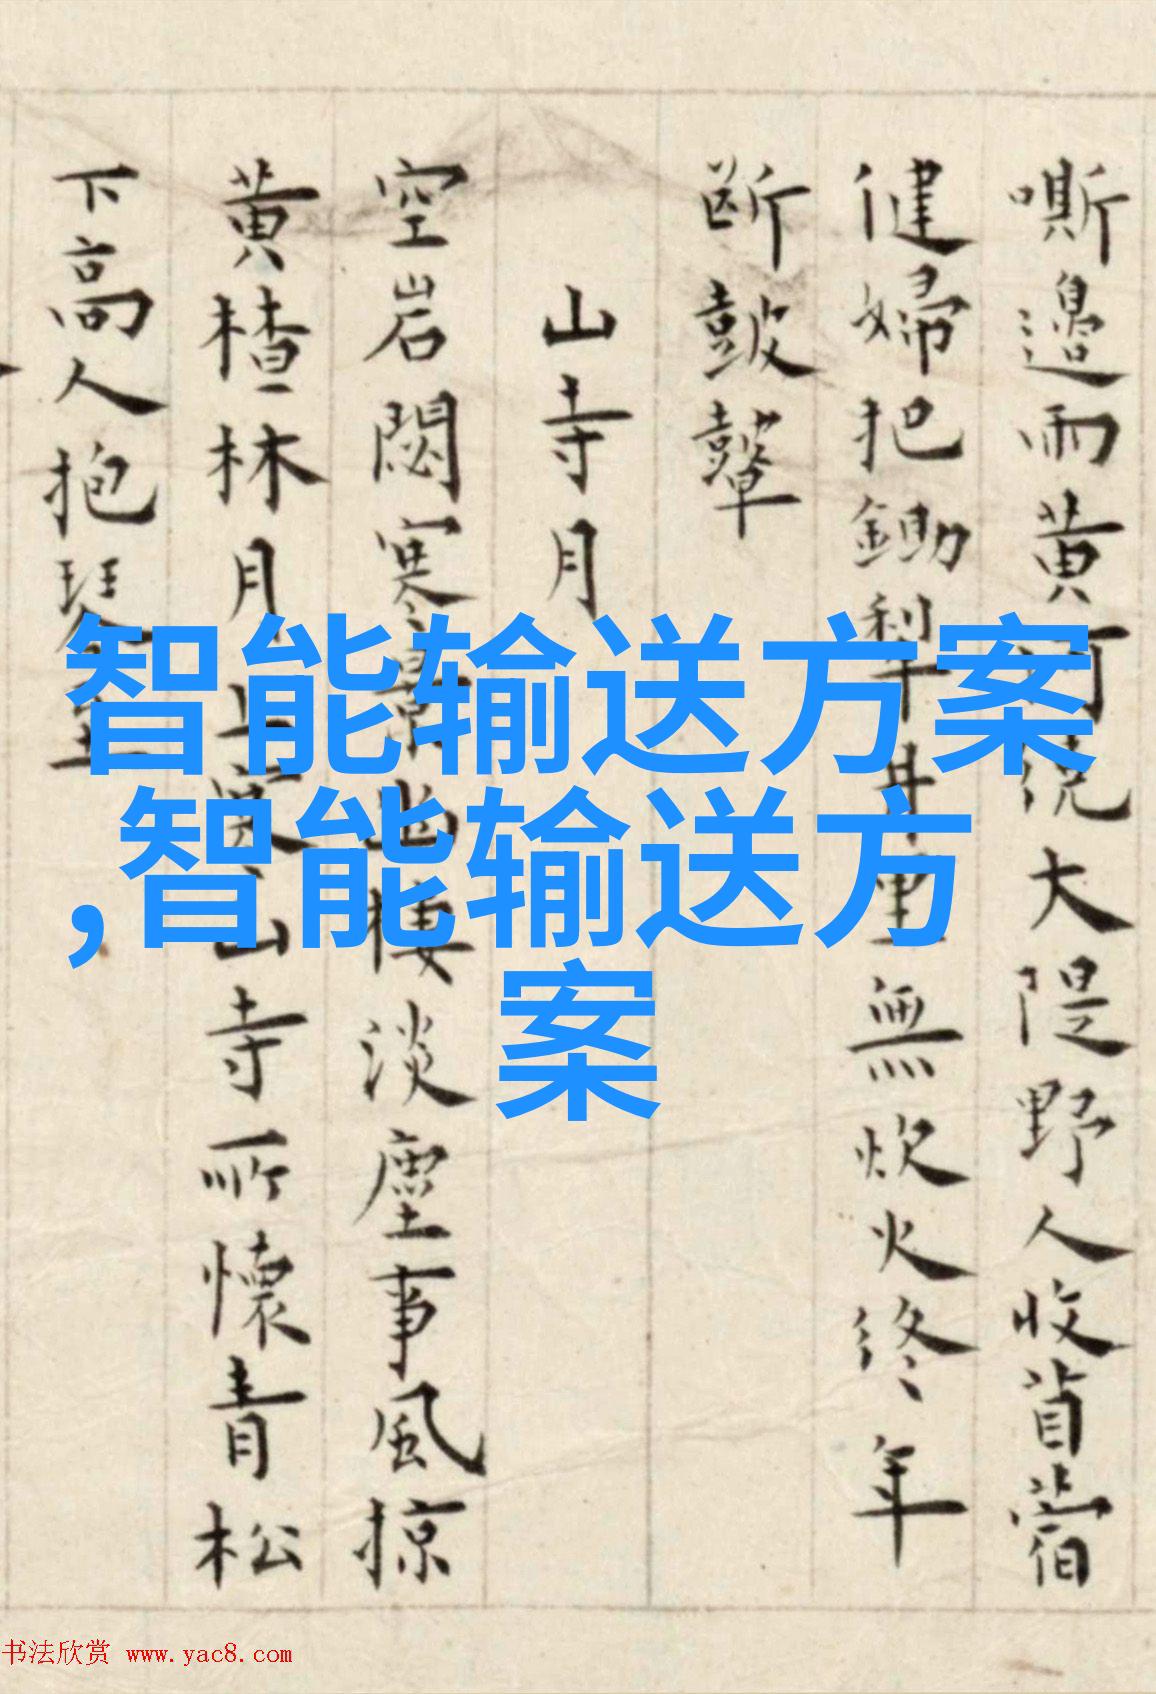 嘶邊雨黄河繞大隄野人收苜蓿
健婦把鋤犁井里無炊火終年
斷鼓鼙
山寺月
空岩閟寒栖淡塵事風掠
黄楂林月上山寺所懷青松
下高人抱琴至
智能输送方案
,智能输送方
案
书法欣赏 www.yac8.com